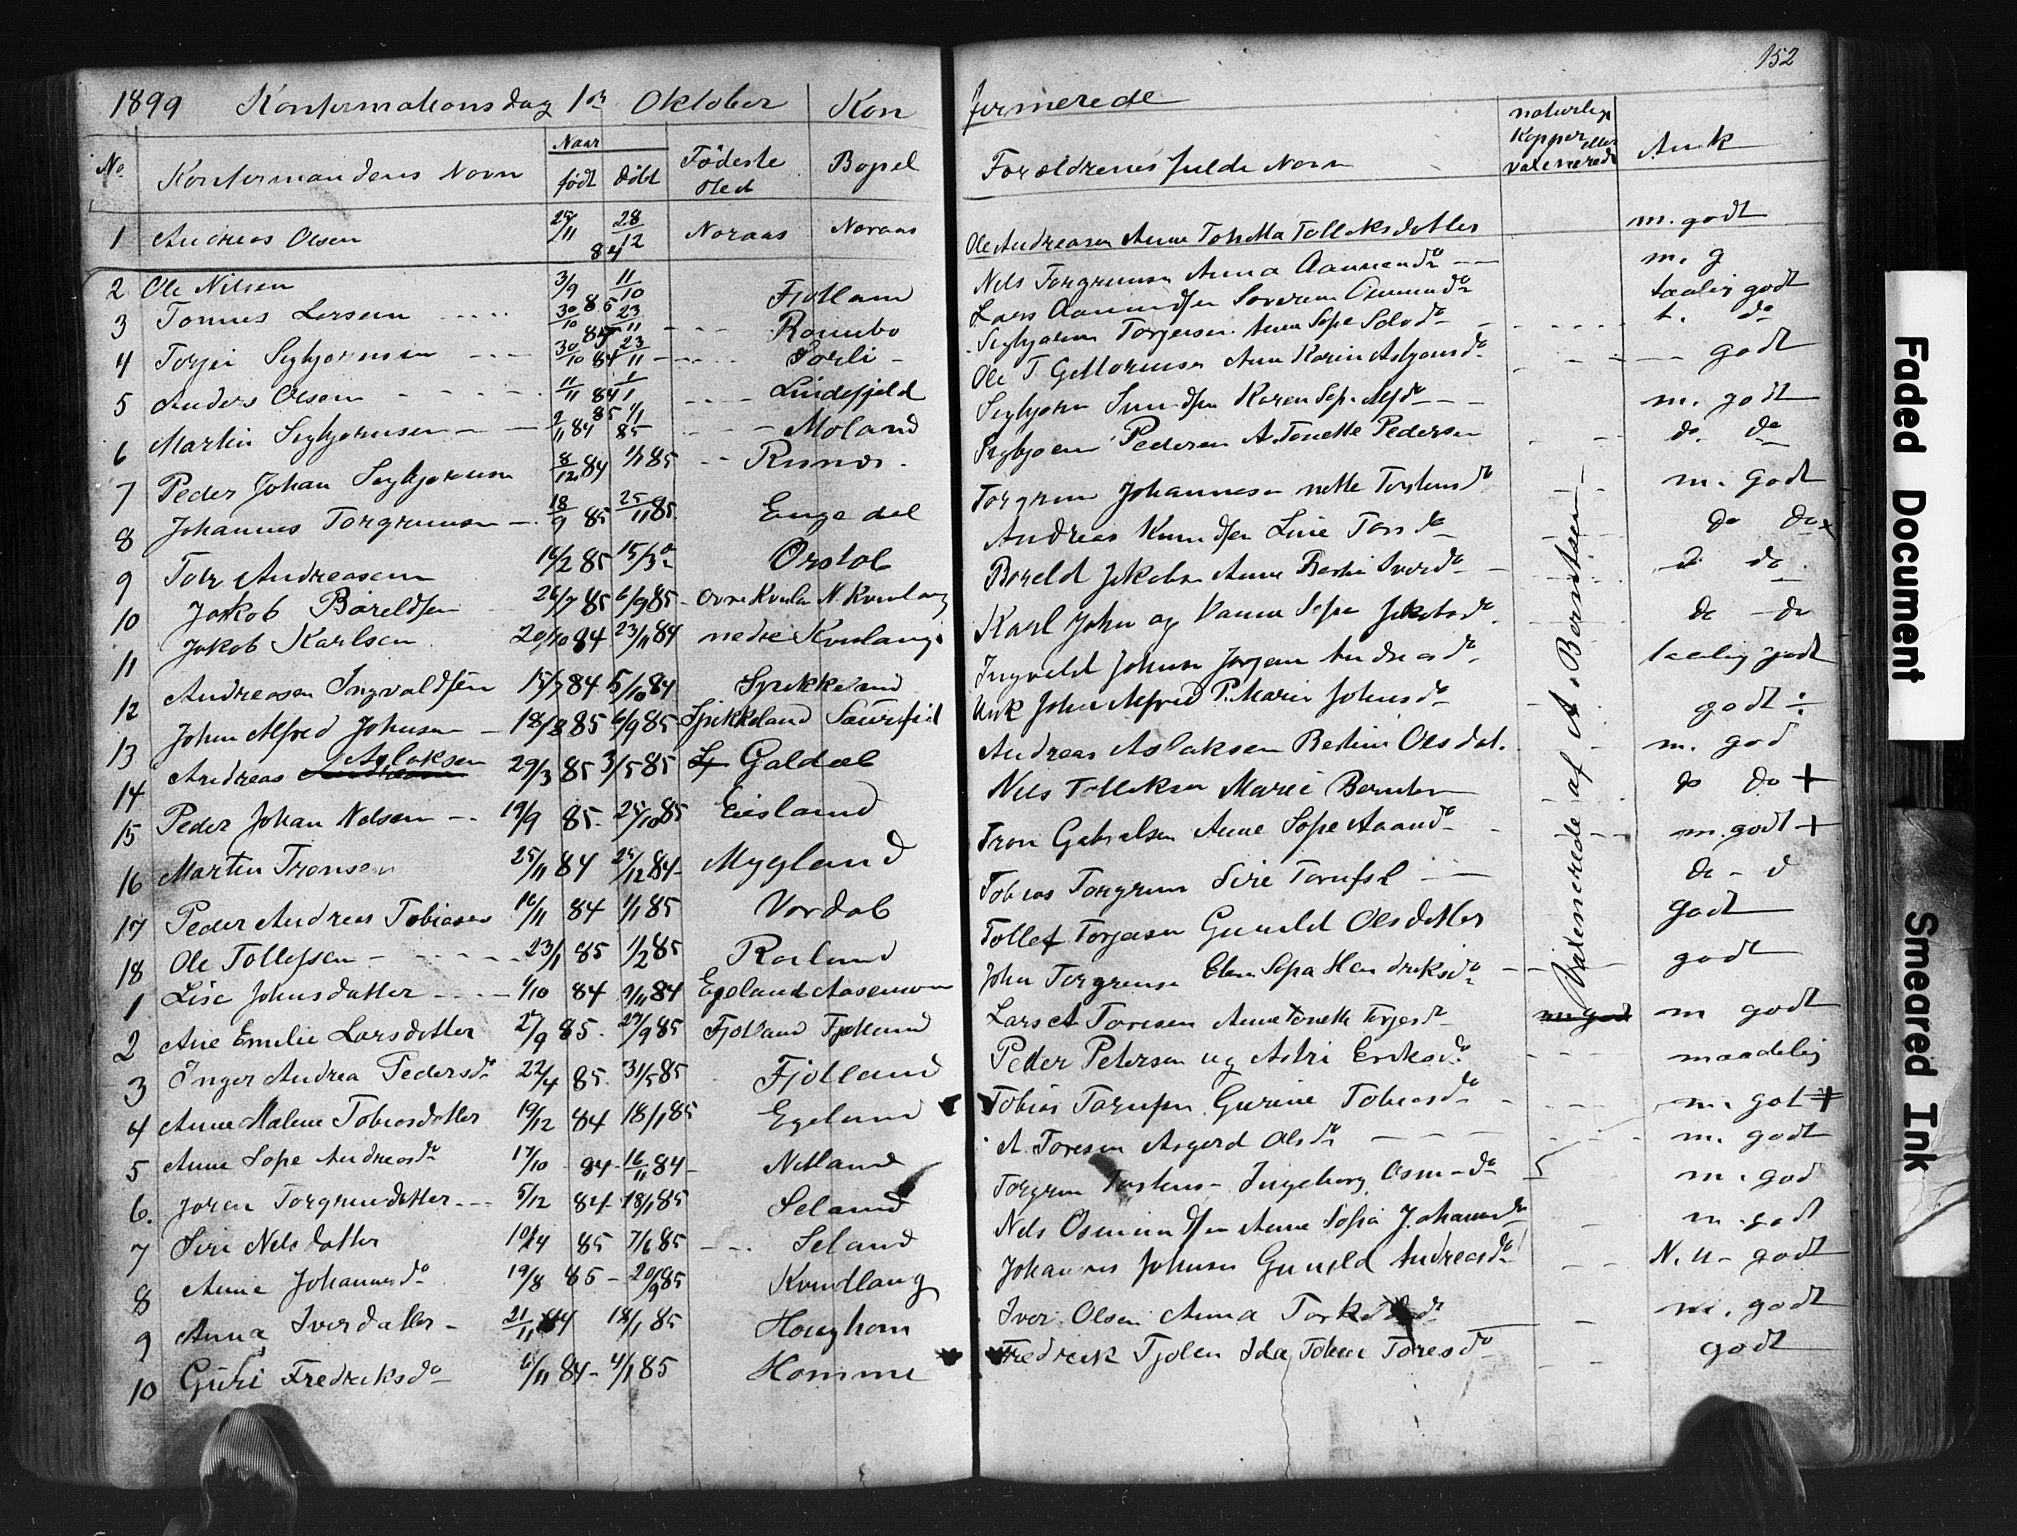 152
1899 Konfermationsdag 1ste Oktober Konfermerede
No Konfermandens Navn Naar født Døbt Fødeste sted Bopel Forældrenes fulde Navn naturlige Kopper eller vaxinerede Ank
1 Andreas Olsen 25/11 84 28/12 Noraas Noraas Ole Andreasen Anne Tollaksdatter m. godt
2 Ole Nilsen 3/9 85 11/10 Fjotland Nels Torgrimsen Anna m. g
3 Tonnes Larsen 30/10 23/11 Rombo Lars taalig godt
4 Torjei Seybjornsen 30/10 84 23/11 Sorli Seybjorn Torjersen Anne Sofe t. do
5 Anders Olsen 11/11 84 1/1 85 Lindefjeld Ole T Anne Karin godt
6 Martin Seybjornsen 2/11 84 1/1 85 Moland Seybjorn Karen m. godt
7 Peder Johan Seybjornsen 8/12 84 1/1 85 Risnes Seybjorn Pedersen Antonette Pedersen do do
8 Johannes Torgrimsen 18/9 85 25/11 85 Engedal Torgrim Johannesen m. godt
9 Tore Andreasen 16/2 85 15/3 Orstol Andreas Knudsen Line Tors do do do
10 Jakob Bareldsen 26/7 85 6/9 85 ovre Kvinlan N. Kvinlaug Bareld Jakobsen Anne Berthe Ivers do do
11 Jakob Karlsen 20/10 84 23/11 84 nedre Kvinlaug Karl John og Hanne Sofe Jakobs do do - do
12 Andreasen Ingvaldsen 15/7 84 5/10 84 Spikkeland Ingvald Johnsen Jorgine Andreas do taalig godt
13 John Alfred Johnsen 18/8 85 6/9 85 Spikkeland John Alfred P. Marie Johns do godt ÷
14 Andreas Aslaksen 29/3 85 3/5 85 Galdal Andreas Aslaksen Berthine Olsdat. m. god
15 Peder Johan Nelsen 19/9 85 25/10 85 Eiesland Nels Tolleksen Marie do do +
16 Martin Tronsen 25/11 84 25/12 84 Mygland Tron Gabrielsen Anne Sofe m. godt +
17 Peder Andreas Tobiasen 16/11 84 1/1 85 Vordal Tobias Torgrim Sire do - d
18 Ole Tollefsen 23/1 85 1/2 85 Roiland Tollef Torjesen Gunild Olsdatter godt
1 Lise Johnsdatter 84 9/11 84 Egeland John Torgrimsen Elen Sofa Hendriks do godt
2 Ane Emilie Larsdatter 27/9 85 27/9 85 Fjotland Fjotland Lars A Toresen Anne Tonette Terjes do m godt
3 Inger Andrea Peders do 22/4 85 31/5 85 Fjotland Peder Petersen og Astri Eriks do maadelig
4 Anne Malene Tobiasdatter 19/12 84 18/1 85 Egeland Tobias Gurine Tobias do m. got +
5 Anne Sofe Andreas do 17/10 84 16/11 84 Netland A. Toresen Asgerd Ols do m. godt
6. Joren Torgrimdatter 5/12 84 18/1 85 Seland Torgrim Ingeborg Osm do m. god
7 Siri Nelsdatter 85 7/6 85 Seland Nels Osmundsen Anne Sofia Johannes do m. godt
8 Anne Johannes do 19/8 85 20/9 85 Kvindlaug Johannes Johnsen Gunild Andreas do godt
9 Anna Iverdatter 21/11 84 18/1 85 Houghom Iver Olsen Anna m. godt
10 Guri Fredriks do 6/11 84 4/1 85 Homme Fredrik Ida Tores do godt
Vaxinerede af A. Berntsen
Faded Document
Smeared Ink